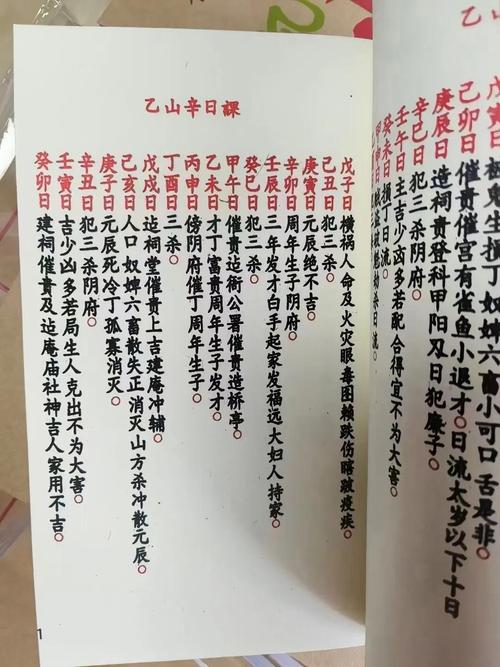 乙山
戊寅日
生损丁奴婢六畜小可口舌是非。
己卯日催贵催宫有雀鱼小退才。日流太岁以下十日
庚辰日造祠贵登科甲阳刄日犯廉子。
辛巳日犯三杀阴府。
壬午日主吉少凶多若配合得宜不为大害。
癸未日损丁日流。
甲申日
杀日流。
乙山辛日課
戊子日横祸人命及火灾眼毒图赖跌伤瞎跛疫疾。
己丑日
庚寅日元辰绝不吉。
辛卯日周年生子阴府。
壬辰日三年发才白手起家发福远大妇人持家。
癸巳日犯三杀。
甲午日催贵造衙公署催贵造桥亭。
乙未日才丁富贵周年生子发才。
丙申日傍阴府催丁周年生子。
丁酉日三杀。
戊戍日造祠堂催贵上吉建庵冲辅。
己亥日人口奴婢六畜散失正消灭山方杀冲散元辰。
庚子日元辰死冷丁孤寡消灭。
辛丑日犯三杀阴府。
壬寅日吉少凶多若局生人克出不为大害。
癸卯日建祠催贵及造庵庙社神吉人家用不吉。
1